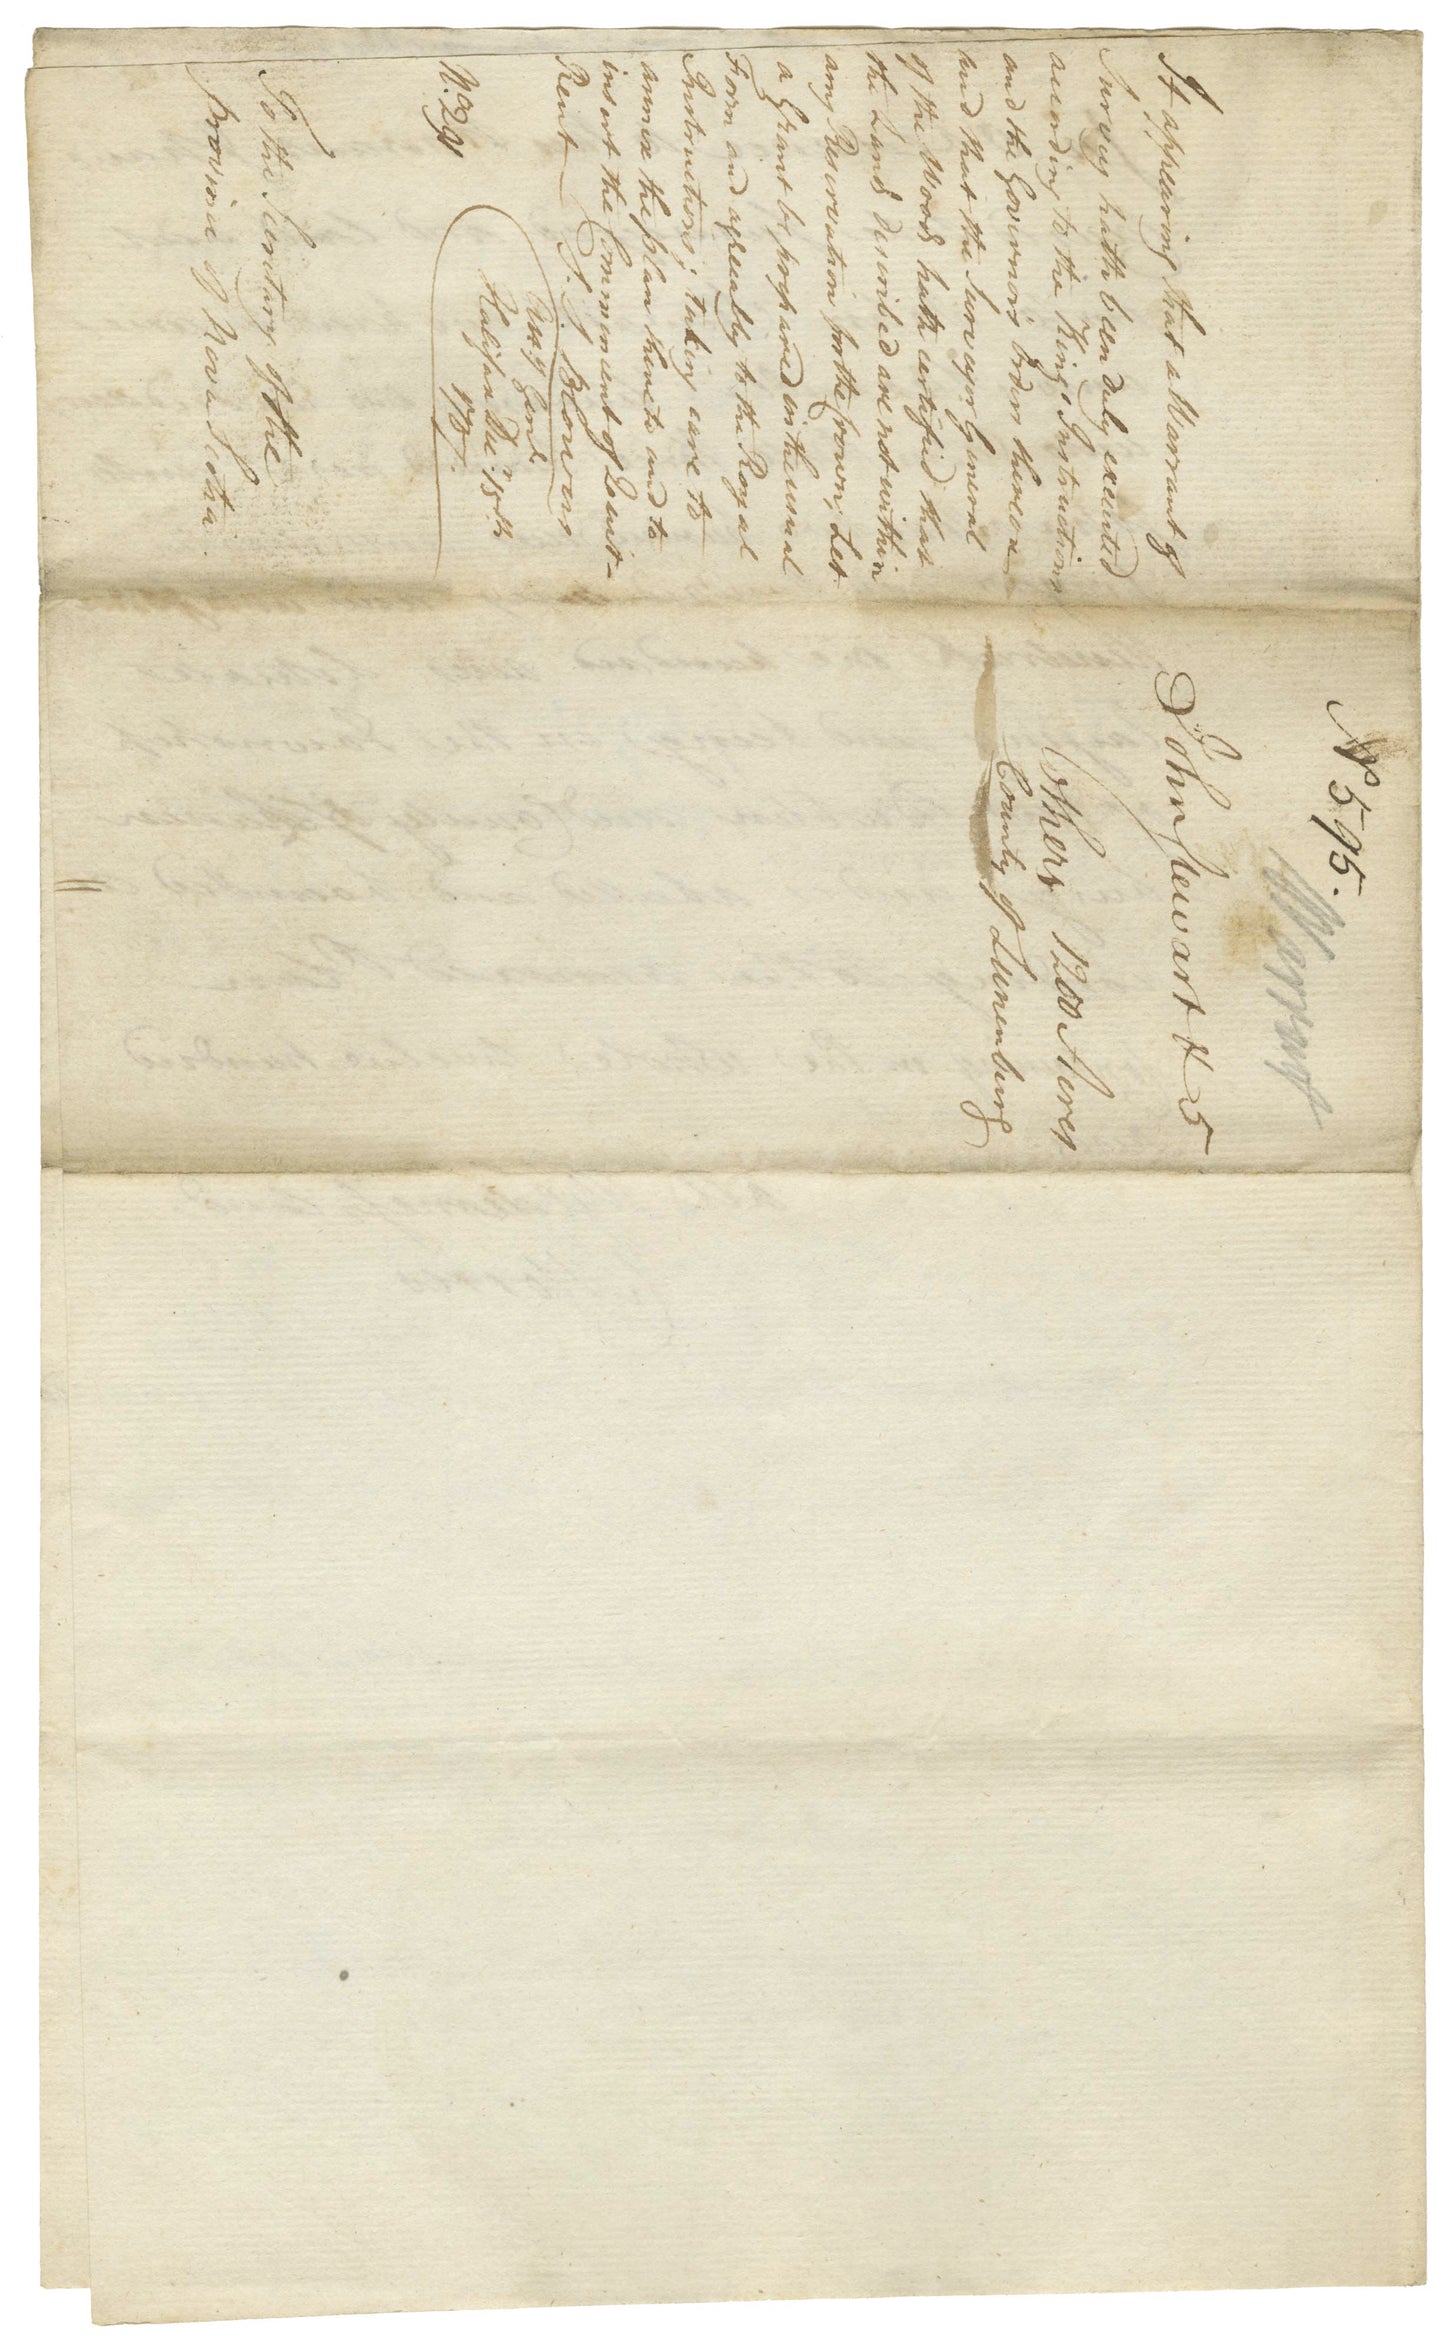 It appearing that a Warrant of
Survey hath been duly executed
according to the Kings Instructions
and the Governor's Order thereon
and that the Surveyor General
of the Woods hath certified that
the Land described are not within
any Reservation for the Crown; Let
a Grant be prepared in the usual
Form and agreeably to the Royal
Instructions; taking care to
annex the plan thereto and to
insert the Commencment of Quit-
Rent
S. S. Blowers
Atty Genl.
Halifax Decr. 15th
No. 29
To the Secretary of the
Province of Nova Scotia.
No 595.
Warrant
John Stewart & 5
Others 1200 Acres
County of Lunenburg